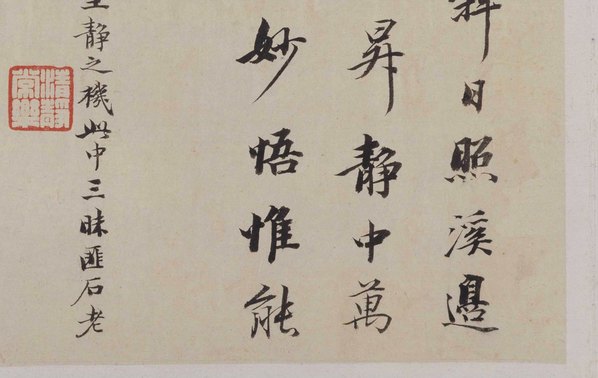 斜日照溪邊
昇靜中萬
妙悟惟能
靜之機此中三昧匪石老
清靜常樂